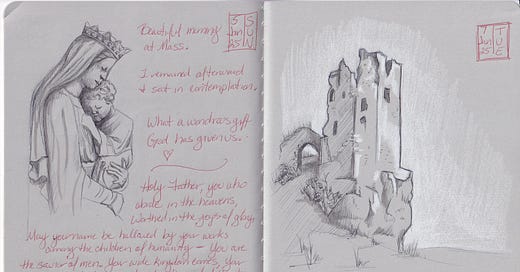 Beautiful morning
at Mass.
5 Jan 25 SUN
I remained afterward
& sat in contemplation.
What a wondrous gift
God has given us.
Holy Father, you who
abide in the heavens,
in the joys of glory
May your name be hallowed by your works
among the children of humanity — You are
the savior of men. Your wide kingdom comes, Your
7 Jan 25 TUE